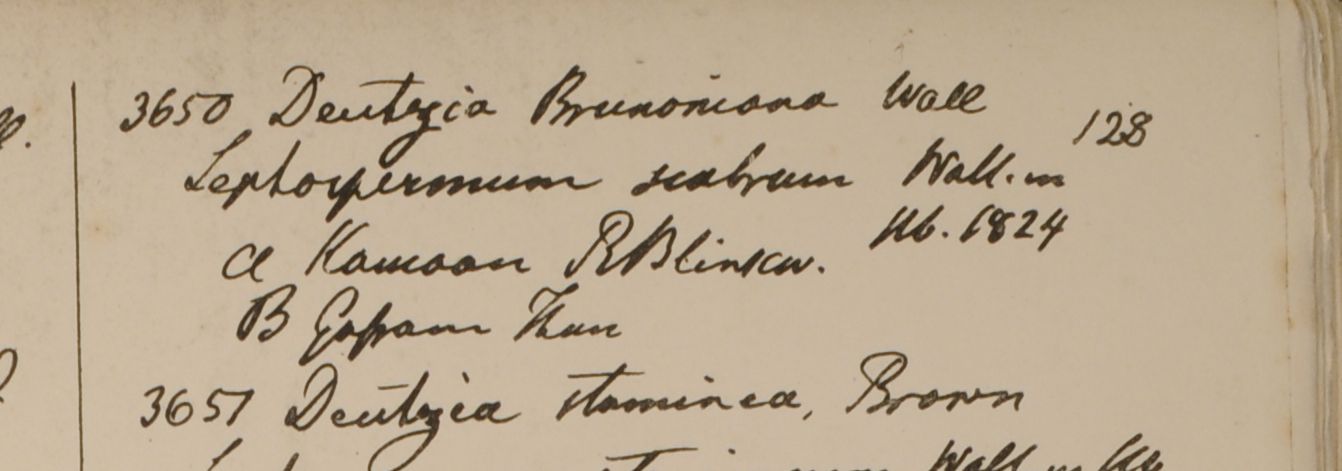 3650 Deutzia Brunoniana Wall
128
Leptospermum scabrum Wall. in
Hb. 1824
a Kamaon R Blinkw.
B Gossam Than
3651 Deutzia staminea, Brown
Wall in Hb